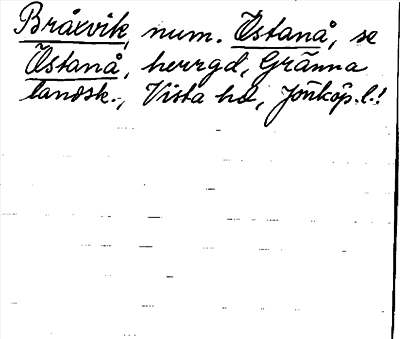 Bråxvik, num. Östanå, se
Östanå, herrgd, Gränna
landsk., Vista hd, Jönköp. l.!